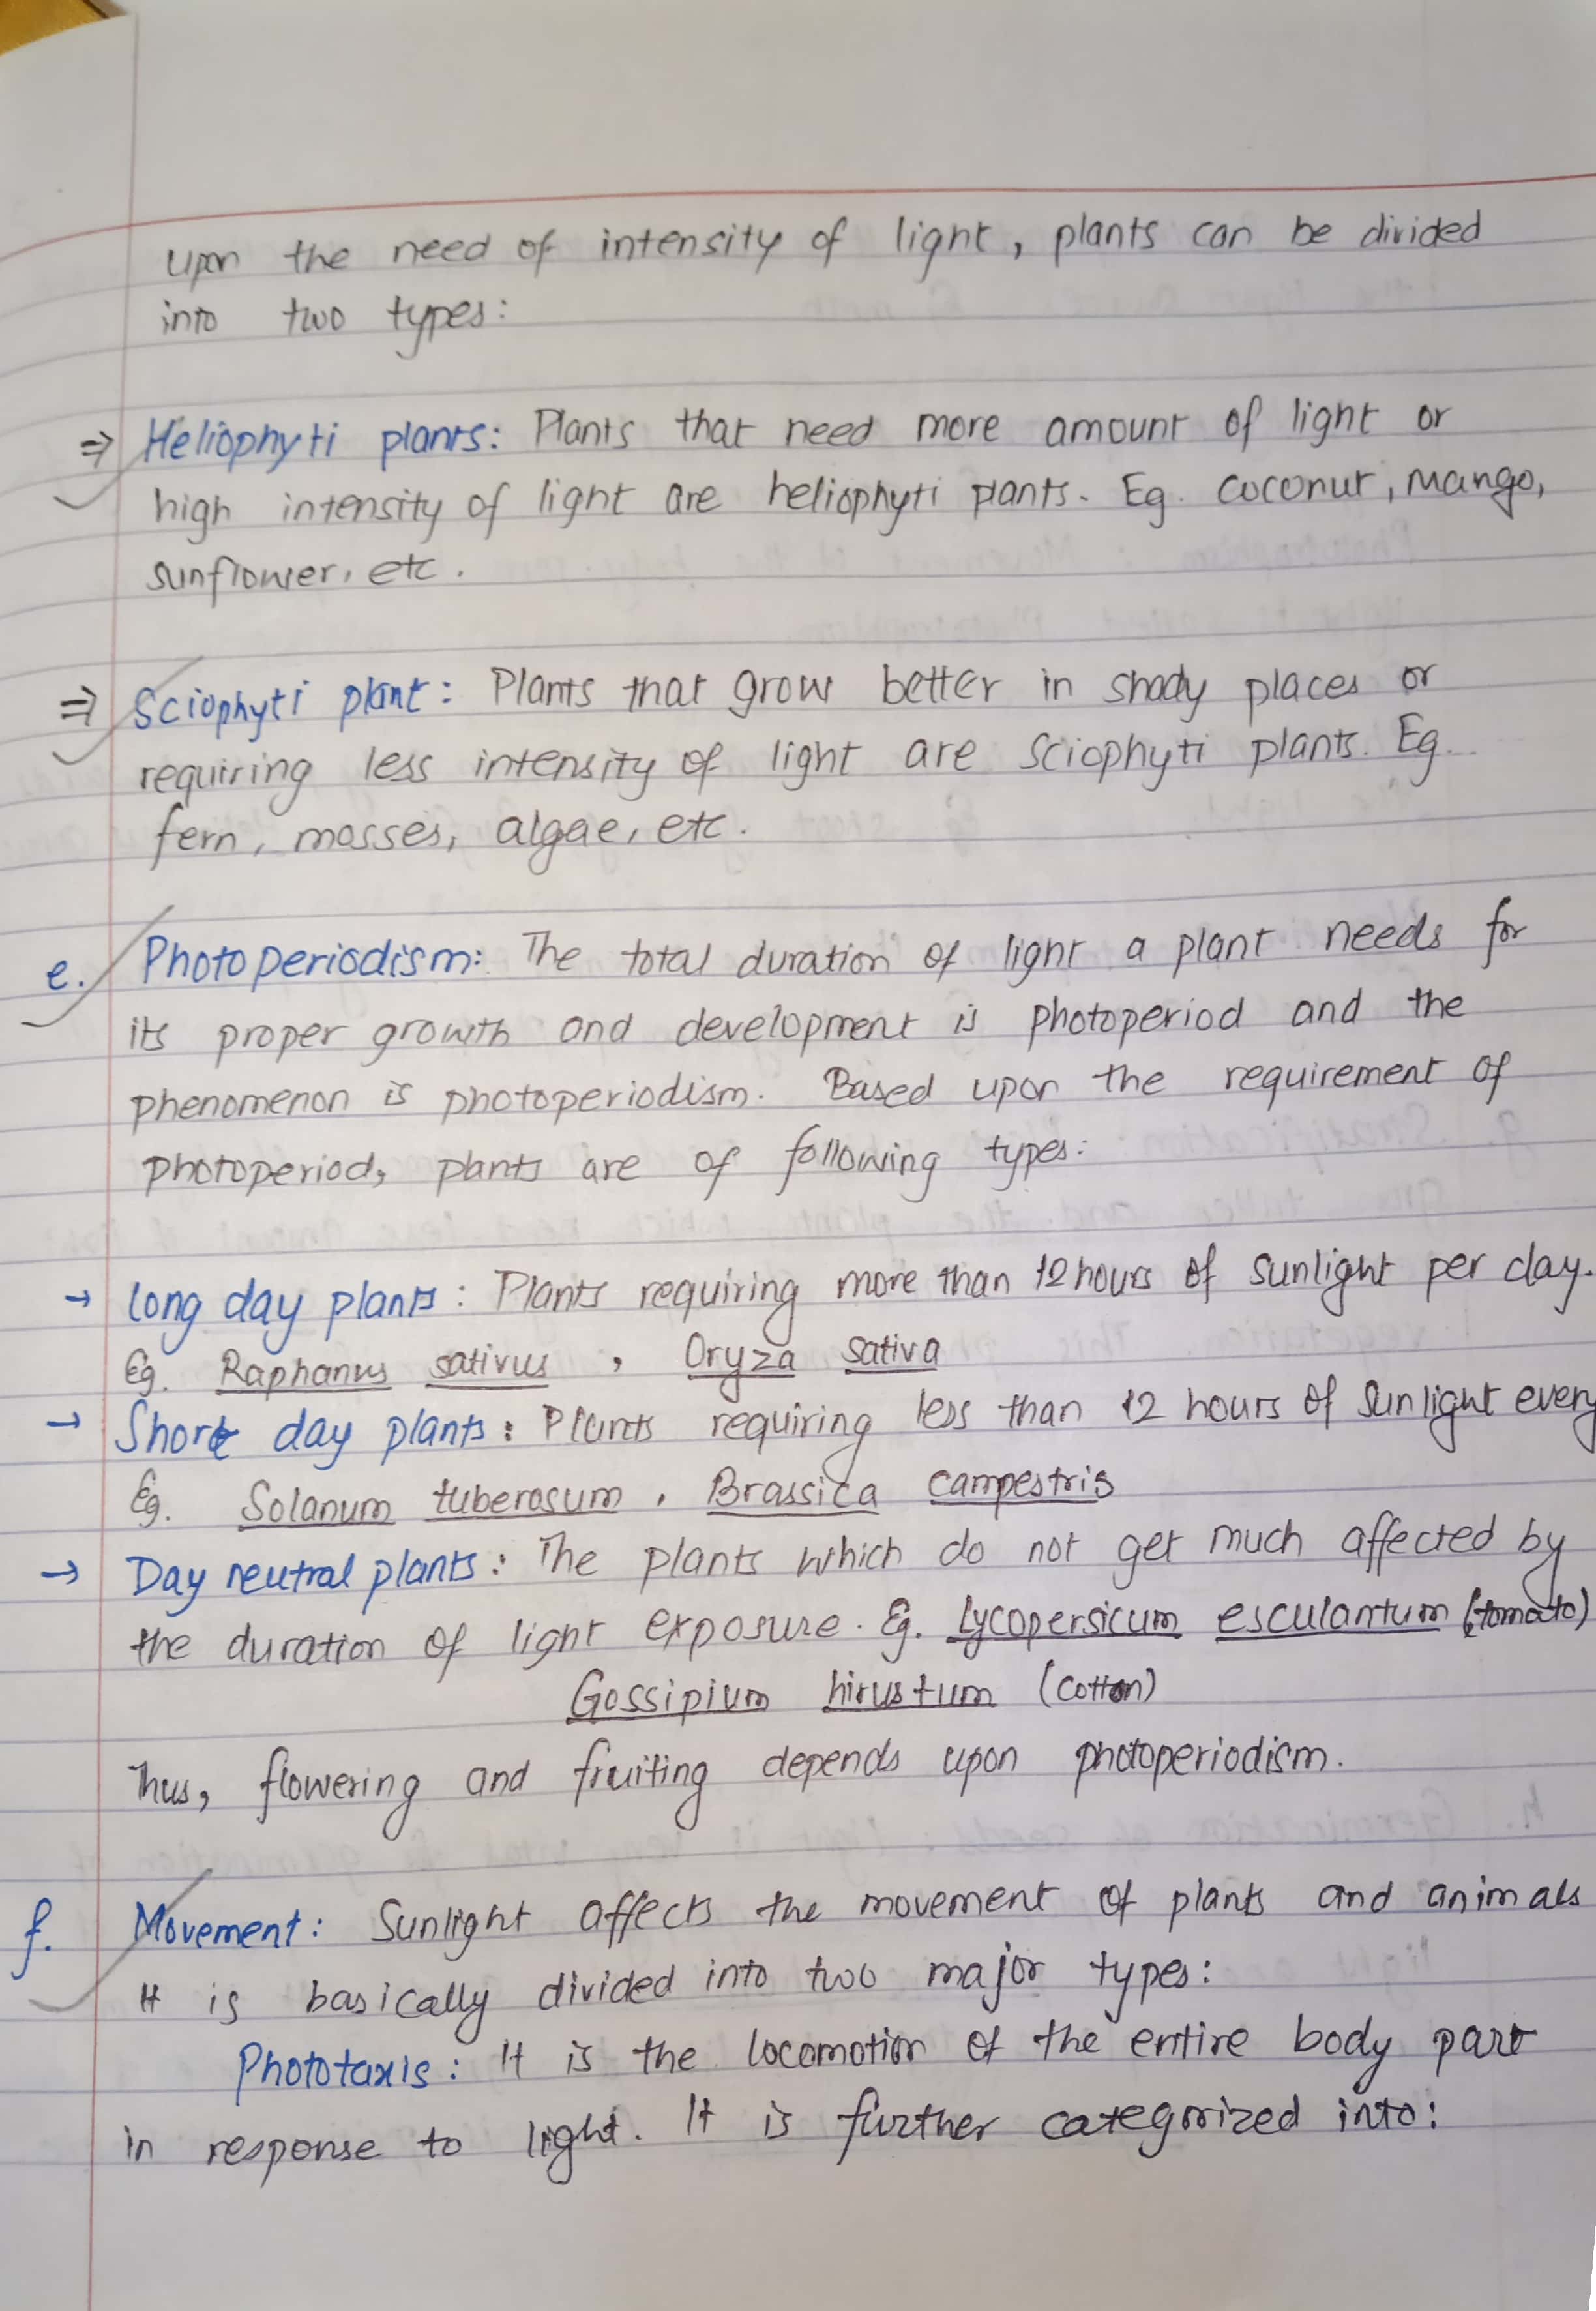 upon the need of intensity of light, plants can be divided
into two types:
⇒ Heliophyti plants: Plants that need more amount of light or
high intensity of light are heliophyti plants. Eg. coconut, mango,
sunflower, etc.
⇒ Sciophyti plant: Plants that grow better in shady places or
requiring less intensity of light are sciophyti plants. Eg.
fern, mosses, algae, etc.
e. Photoperiodism: The total duration of light a plant needs for
its proper growth and development is photoperiod and the
phenomenon is photoperiodism. Based upon the requirement of
photoperiod, plants are of following types:
→ Long day plants: Plants requiring more than 12 hours of sunlight per day.
Eg. Raphanus sativus, Oryza sativa
→ Short day plants: Plants requiring less than 12 hours of sunlight every
Eg. Solanum tuberosum, Brassica campestris
→ Day neutral plants: The plants which do not get much affected by
the duration of light exposure. Eg. Lycopersicum esculantum (tomato)
Gossipium hirustum (cotton)
Thus, flowering and fruiting depends upon photoperiodism.
f. Movement: Sunlight affects the movement of plants and animals
It is basically divided into two major types:
Phototaxis: It is the locomotion of the entire body part
in response to light. It is further categorized into: